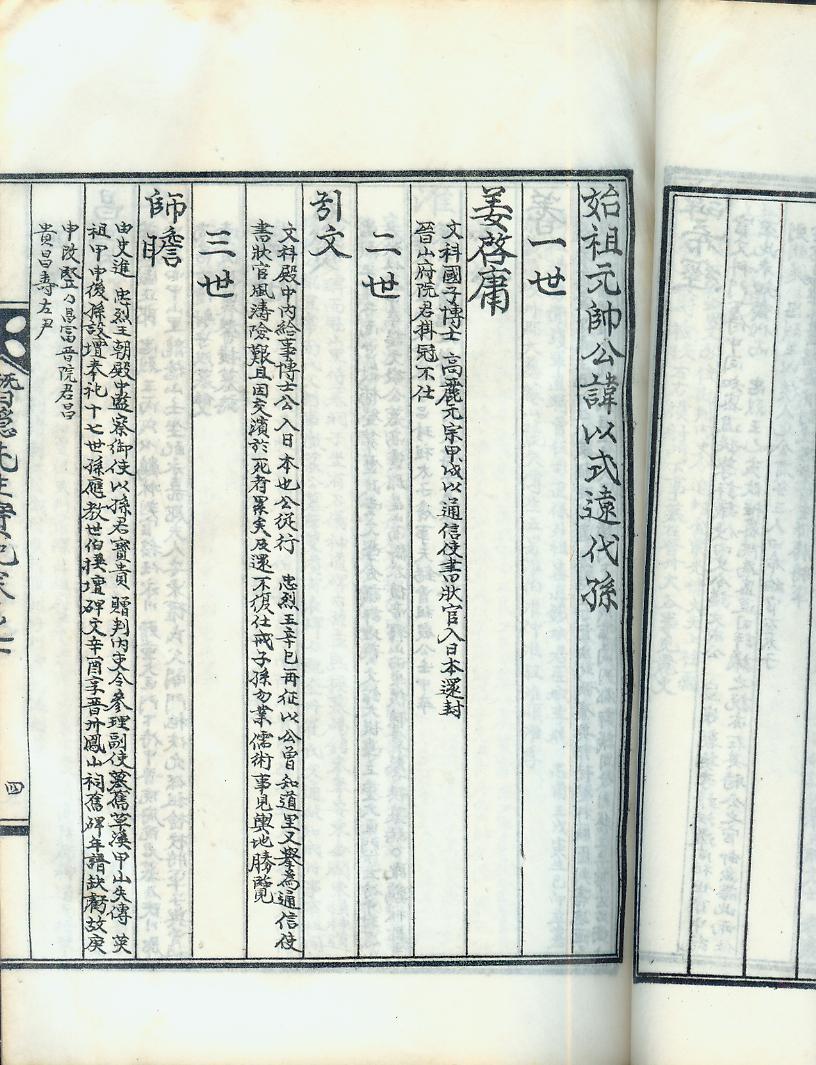 始祖元帥公諱以式遠代孫
一世
姜啓庸
文科國子博士 高麗元宗甲戌以通信使書狀官入日本還封
晉山府院君掛冠不仕
二世
引文
文科殿中內給事博士公入日本也公從行 忠烈王辛巳再征以公曾知道里又擧為通信使
書狀官風濤險艱且因交瀆於死者累矣及還不復仕戒子孫勿業儒術事見輿地勝覽
三世
師瞻
由史進 忠烈王朝殿中監察御使以孫君寶貴 贈判內吏令參理副使墓舊草溪甲山失傳 英
祖甲申後孫設壇奉祀十七世孫應教世伯撰壇碑文辛酉享晉州鳳山祠舊碑年譜缺虧故庚
申改竪 昌富晉院君昌
貴昌壽左尹
隱先生實記卷之
四